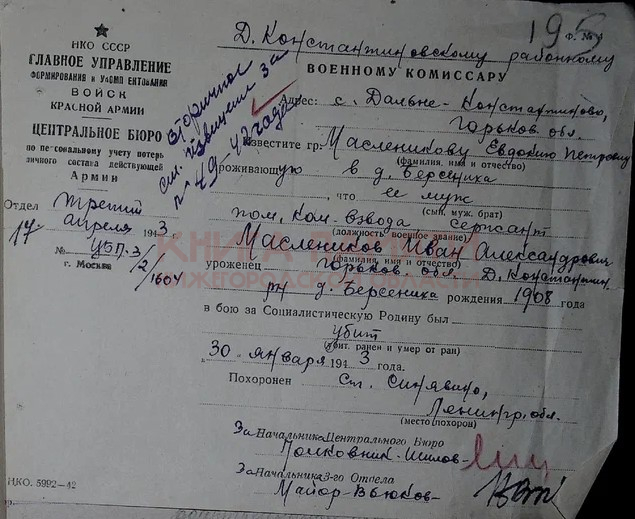 195 Ф. № 4
НКО СССР
ГЛАВНОЕ УПРАВЛЕНИЕ
ФОРМИРОВАНИЯ и УКОМПЛЕКТОВАНИЯ
ВОЙСК
КРАСНОЙ АРМИИ
ЦЕНТРАЛЬНОЕ БЮРО
по персональному учету потерь
личного состава действующей
Армии
Отдел третий
17. апреля 1943
№ УБП-3/2/1604
г. Москва
вторичное
см. извещение за
№ 49-42 года
Д. Константиновскому районному
ВОЕННОМУ КОМИССАРУ
Адрес: с. Дальне-Константиново,
Горьков. обл.
Известите гр. Масленикову Евдокию Петровну
(фамилия, имя и отчество)
Проживающую в д. Берсениха
, что ее муж
(сын, муж, брат)
пом. ком. взвода, сержант
(должность военное звание)
Маслеников Иван Александрович
(фамилия, имя и отчество)
уроженец Горьков. обл. Д. Константин.
д. Берсениха рождения 1908 года
КНИГА ПАМЯТИ
НИЖЕГОРОДСКОЙ ОБЛАСТИ
в бою за Социалистическую Родину был
убит
(убит, ранен и умер от ран)
„30 января 1943 года.
Похоронен ст. Синявино,
Ленингр. обл.
(место похорон)
За Начальника Центрального Бюро
Полковник-Шилов-
За Начальника 3-го Отдела
Майор-Вьюков-
НКО. 5992—42